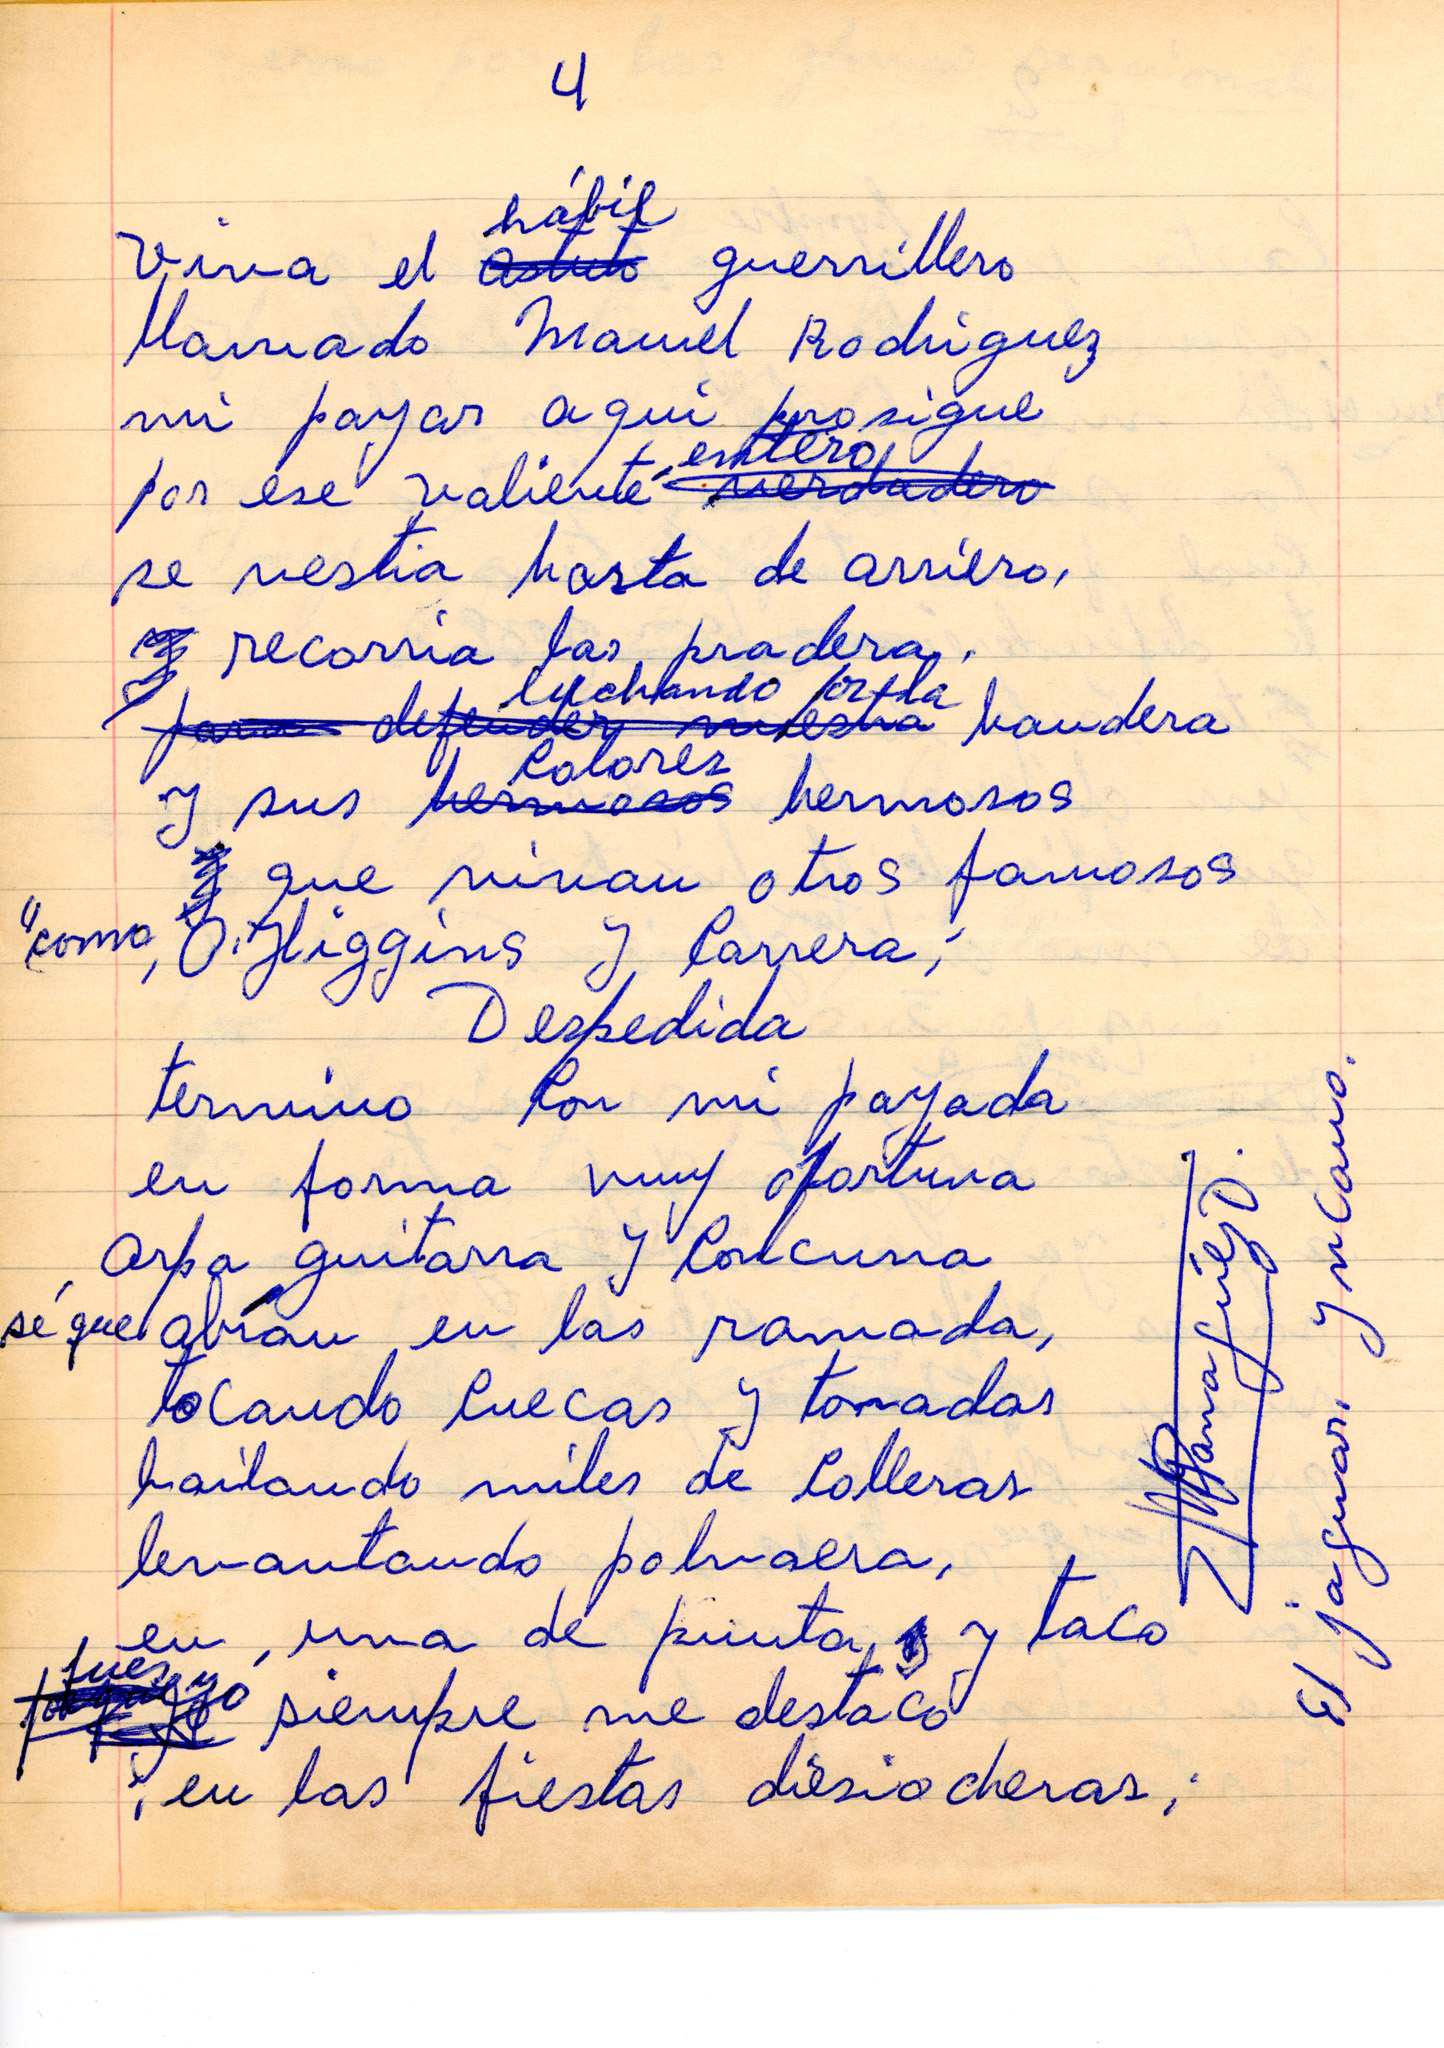 4
Viva el hábil astuto guerrillero
llamado Manuel Rodriguez
mi payar aqui prosigue
por ese valiente entero verdadero
se vestia hasta de arriero,
y recorria las pradera,
luchando por la
para defender nuestra bandera
y sus colores hermosos hermosos
y que vivan otros famosos
"como, O.Higgins y Carrera,
Despedida
termino con mi payada
en forma muy oportuna
arpa guitarra y concurra
sé que abrán en las ramada,
tocando cuecas y tonadas
bailando miles de colleras
levantando polvaera,
en, una de punta, y taco
pues yo siempre me destaco
¡en las fiestas diesiocheras,
El jaguar. yucano.